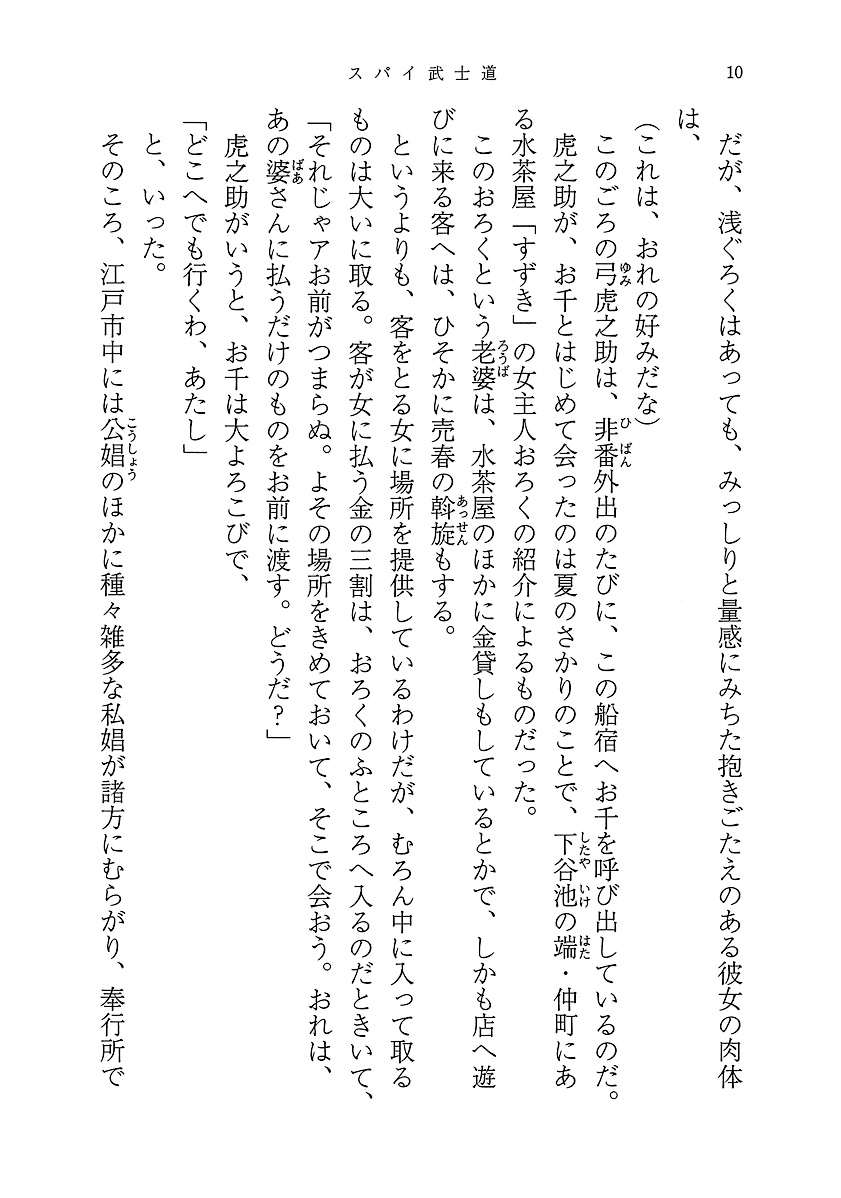 スパイ武士道
10
だが、浅ぐろくはあっても、みっしりと量感にみちた抱きごたえのある彼女の肉体
は、
(これは、おれの好みだな)
このごろの弓虎之助は、非番外出のたびに、この船宿へお千を呼び出しているのだ。
虎之助が、お千とはじめて会ったのは夏のさかりのことで、下谷池の端・仲町にあ
る水茶屋「すずき」の女主人おろくの紹介によるものだった。
このおろくという老婆は、水茶屋のほかに金貸しもしているとかで、しかも店へ遊
びに来る客へは、ひそかに売春の斡旋もする。
というよりも、客をとる女に場所を提供しているわけだが、むろん中に入って取る
ものは大いに取る。客が女に払う金の三割は、おろくのふところへ入るのだときいて、
「それじゃアお前がつまらぬ。よその場所をきめておいて、そこで会おう。おれは、
あの婆さんに払うだけのものをお前に渡す。どうだ?」
虎之助がいうと、お千は大よろこびで、
「どこへでも行くわ、あたし」
と、いった。
そのころ、江戸市中には公娼のほかに種々雑多な私娼が諸方にむらがり、奉行所で